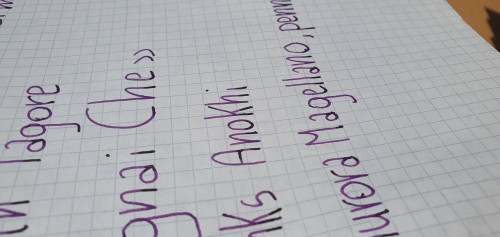 Tagore
gnai Che»
nks Anokhi
urora Magellano, penn